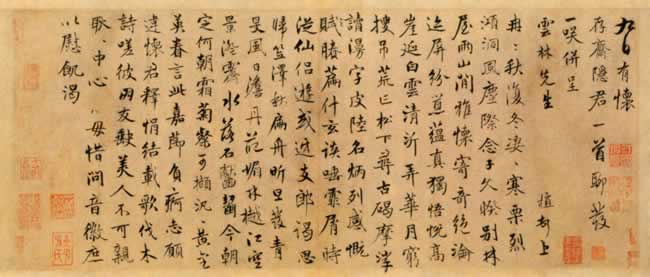 九日有懷
存齋隱君一首聊發
一咲併呈
雲林先生
植 上
冉冉秋復冬淒寒栗烈
澒洞風塵際念子久 別林
屋雨山間雅懷寄奇絕淪
迹屏紛葩蘊真獨悟悅高
崖延白雲清沂弄華月窮
搜吊荒丘松下尋古碣摩挲
讀 字皮陸名炳列感慨
賦勝篇什 談 霏屑時
從仙侶遊或近支郎謁思
歸笠澤秋扁舟昕旦發青
旻風日澹丹葩媚林樾江空
景 霽水落石齒齧今朝
定何朝霜菊 可擷況
英春言此嘉節負病志願
違懷君釋悁結載歌伐木
詩嗟彼朋友 美人不可親
耿中心 毋惜問音徽庶
以慰飢渴